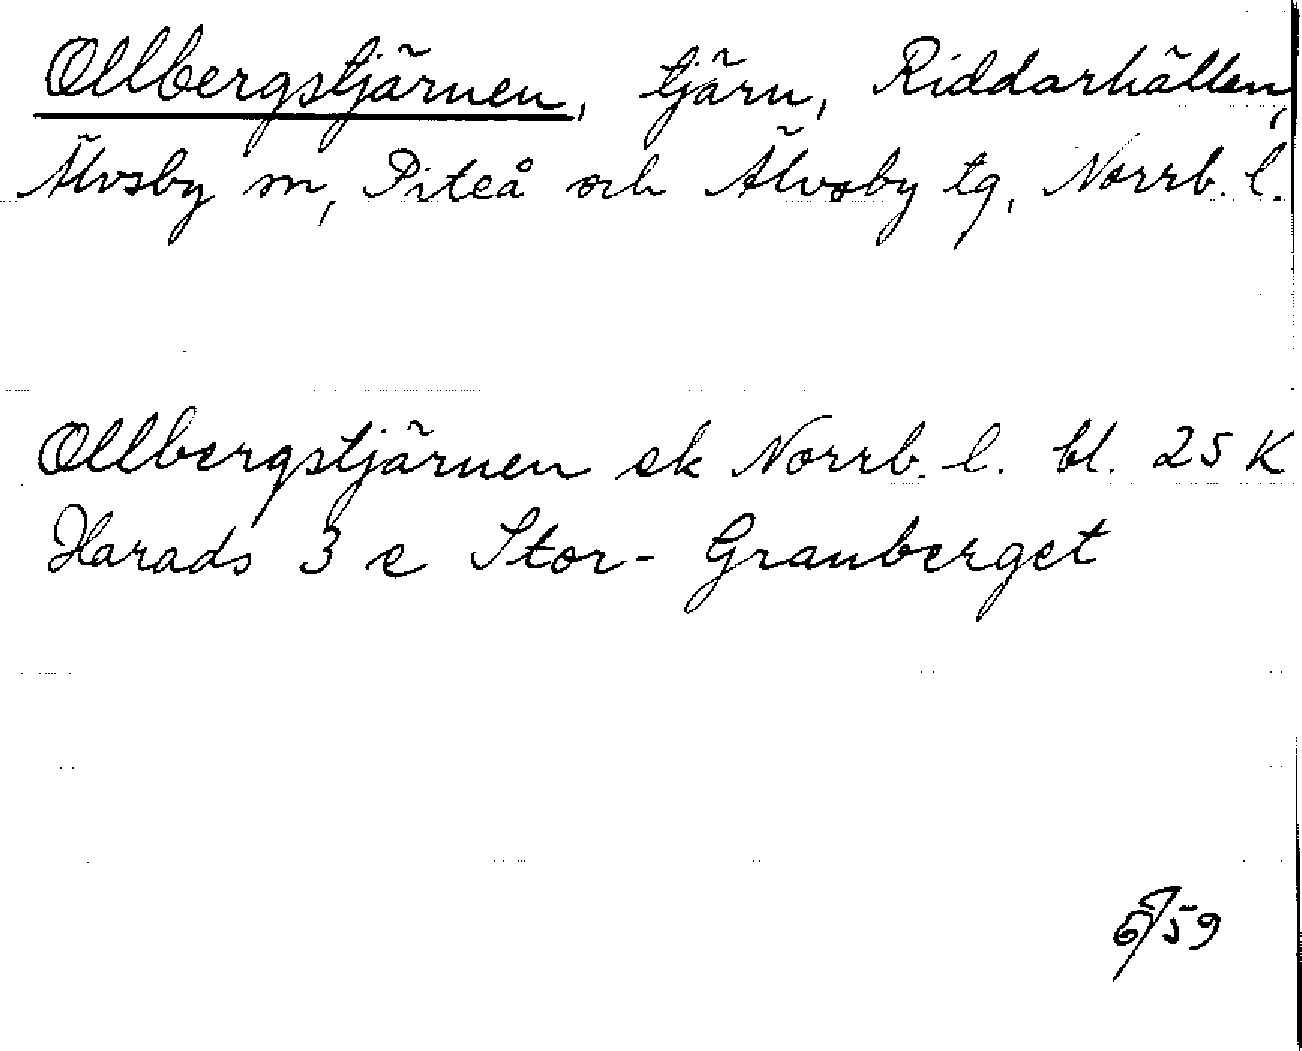 Ollbergstjärnen, tjärn, Riddarhällen,
Älvsby sn, Piteå och Älvsby tg, Norrb. l.
Ollbergstjärnen ek Norrb. l. bl. 25 K
Harads 3 e Stor-Granberget
6/59